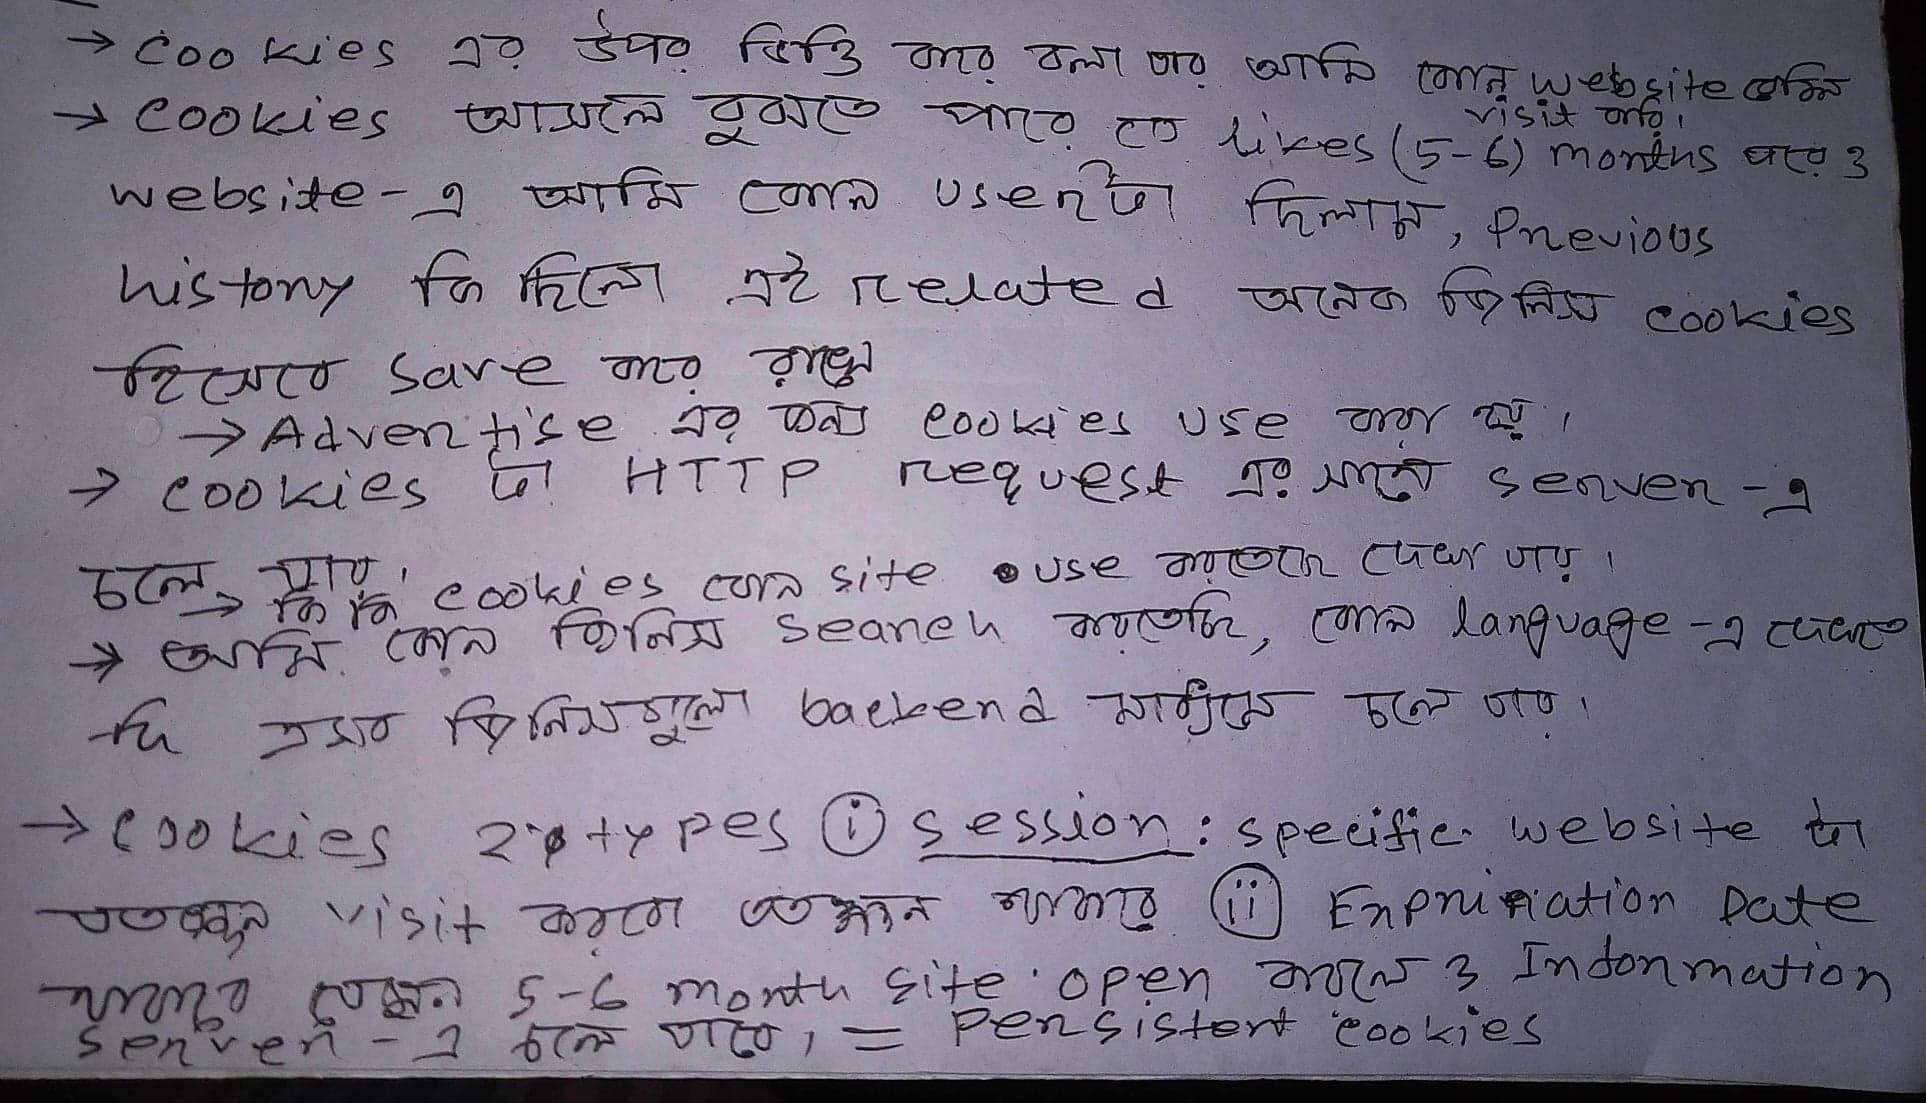 → Cookies এর উপর ভিত্তি করে বলা যায় আমি কোন website বেশি
visit করি।
→ Cookies আসলে বুঝতে পারে যে likes (5-6) months পরে ও
website-এ আমি কোন user টা ছিলাম, Previous
history কি ছিলো এই related অনেক জিনিস cookies
হিসেবে save করে রাখে
→ Advertise এর জন্য cookies use করা হয়।
→ cookies টা HTTP request এর সাথে server-এ
চলে যায়।
→ কি কি cookies কোন site use করতেছে দেখা যায়।
→ আমি কোন জিনিস search করতেছি, কোন language-এ দেখতে
ছি এসব জিনিসগুলো backend মাধ্যমে চলে যায়।
→ Cookies 2 types (i) session: specific website টা
যতক্ষন visit করবো ততক্ষন থাকবে (ii) Expriration Date
থাকবে যেমন 5-6 month site open করলে ও Information
server-এ চলে যাবে, = Persistent cookies